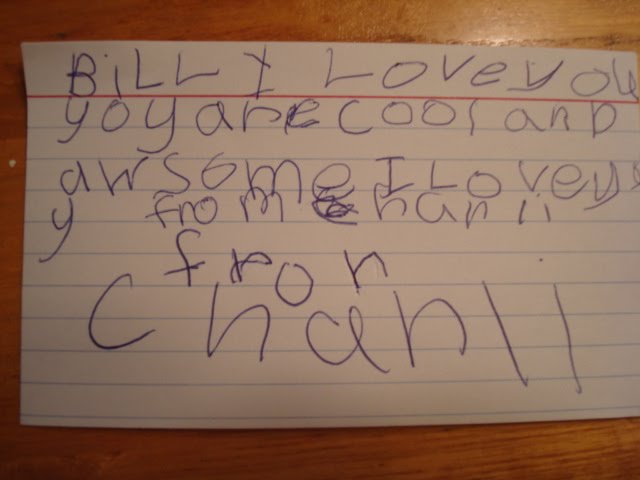 BiLL I Love you
yoy are cool anD
awsome I Love yo
y from Chanii
fron
Chanll